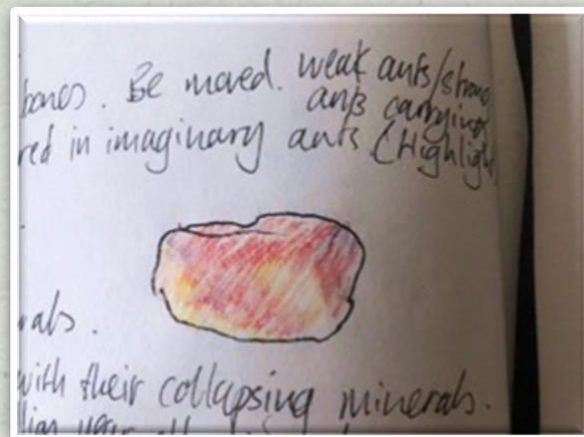 bones. Be moved. weak ants/strong
ants carrying
red in imaginary ants (Highlight
rals.
with their collapsing minerals.
lion year